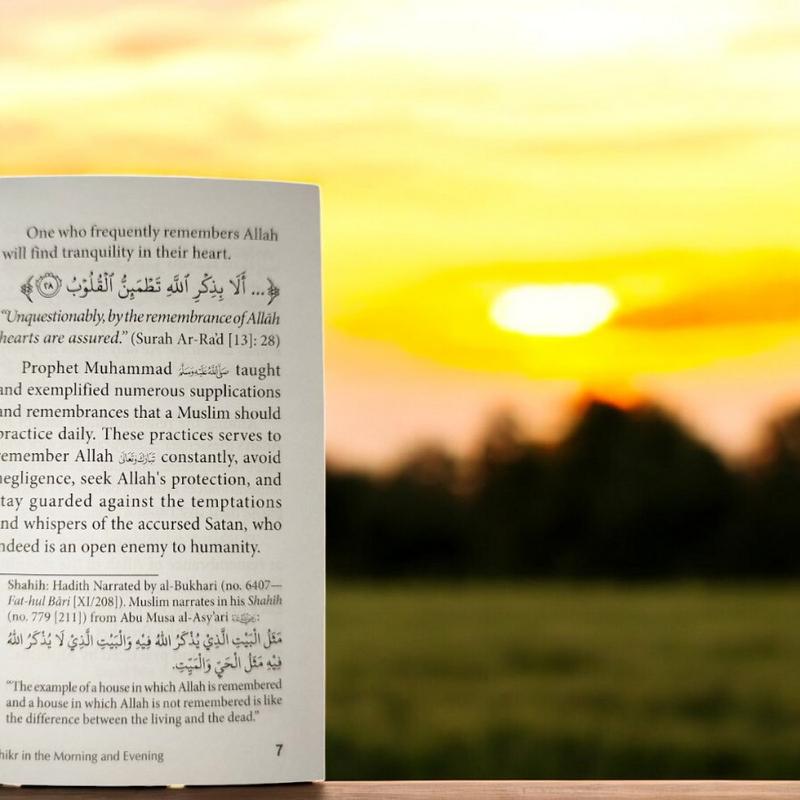 One who frequently remembers Allah
will find tranquility in their heart.
﴿... أَلَا بِذِكْرِ ٱللَّهِ تَطْمَئِنُّ ٱلْقُلُوْبُ ۝٢٨﴾
"Unquestionably, by the remembrance of Allāh
hearts are assured." (Surah Ar-Ra'd [13]: 28)
Prophet Muhammad ﷺ taught
and exemplified numerous supplications
and remembrances that a Muslim should
practice daily. These practices serves to
remember Allah تَبَارَكَ وَتَعَالَىٰ constantly, avoid
negligence, seek Allah's protection, and
stay guarded against the temptations
and whispers of the accursed Satan, who
indeed is an open enemy to humanity.
Shahih: Hadith Narrated by al-Bukhari (no. 6407—
Fat-hul Bâri [XI/208]). Muslim narrates in his Shahih
(no. 779 [211]) from Abu Musa al-Asy'ari :
مَثَلُ الْبَيْتِ الَّذِيْ يُذْكَرُ اللهُ فِيْهِ وَالْبَيْتِ الَّذِيْ لَا يُذْكَرُ اللهُ
فِيْهِ مَثَلُ الْحَيِّ وَالْمَيِّتِ.
"The example of a house in which Allah is remembered
and a house in which Allah is not remembered is like
the difference between the living and the dead."
hikr in the Morning and Evening 7